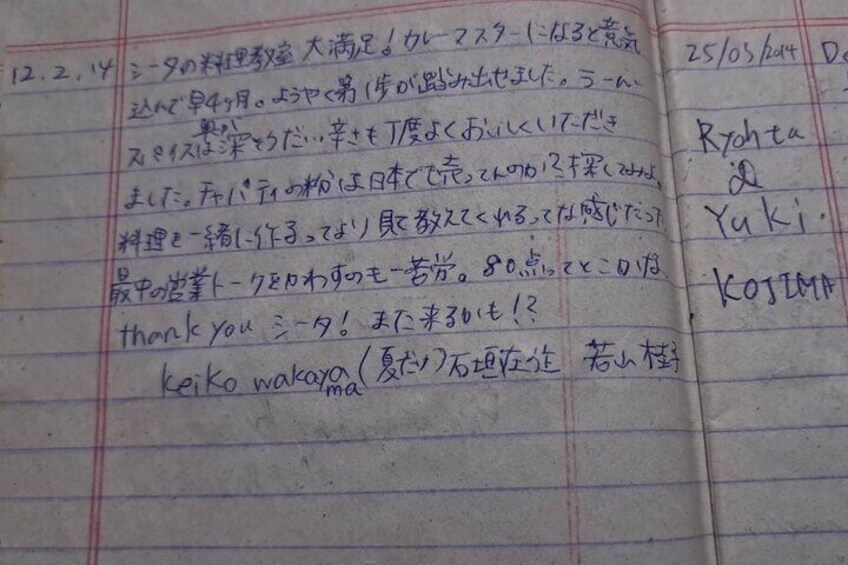 12.2.14 シータの料理教室 大満足！カレーマスターになると意気
込んで早4ヶ月。ようやく第1歩が踏み出せました。うーん
スパイスは奥が深そうだ… 辛さも丁度よくおいしくいただき
ました。チャパティの粉は日本でも売ってんのか？探してみよ。
料理を一緒に作るってより見て教えてくれるってな感じだった
最中の営業トークをかわすのも一苦労。80点ってとこかな
thank you シータ！また来るかも！？
Keiko wakayama (夏だけ)石垣在住 若山 桂子
25/03/2014
Ryohta
&
Yuki.
KOJIMA